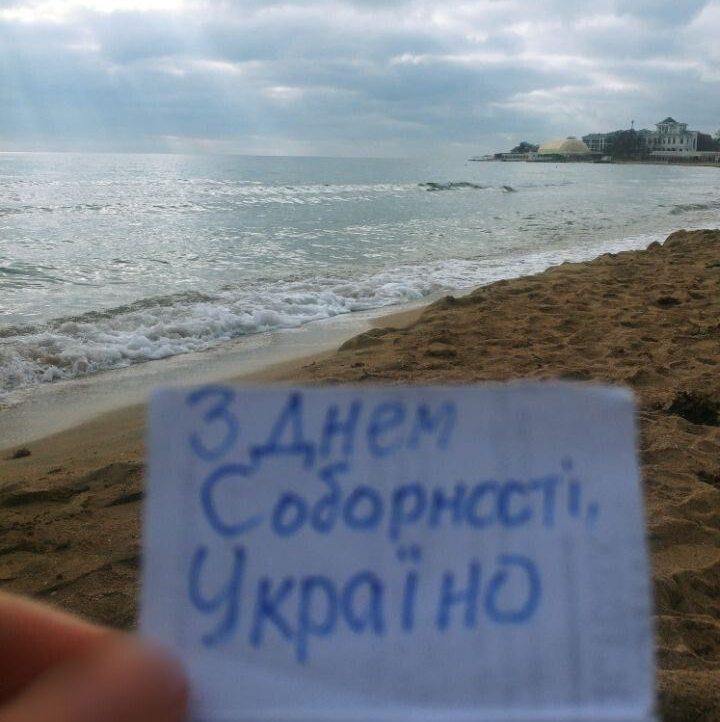 З Днем
Соборності,
Україно